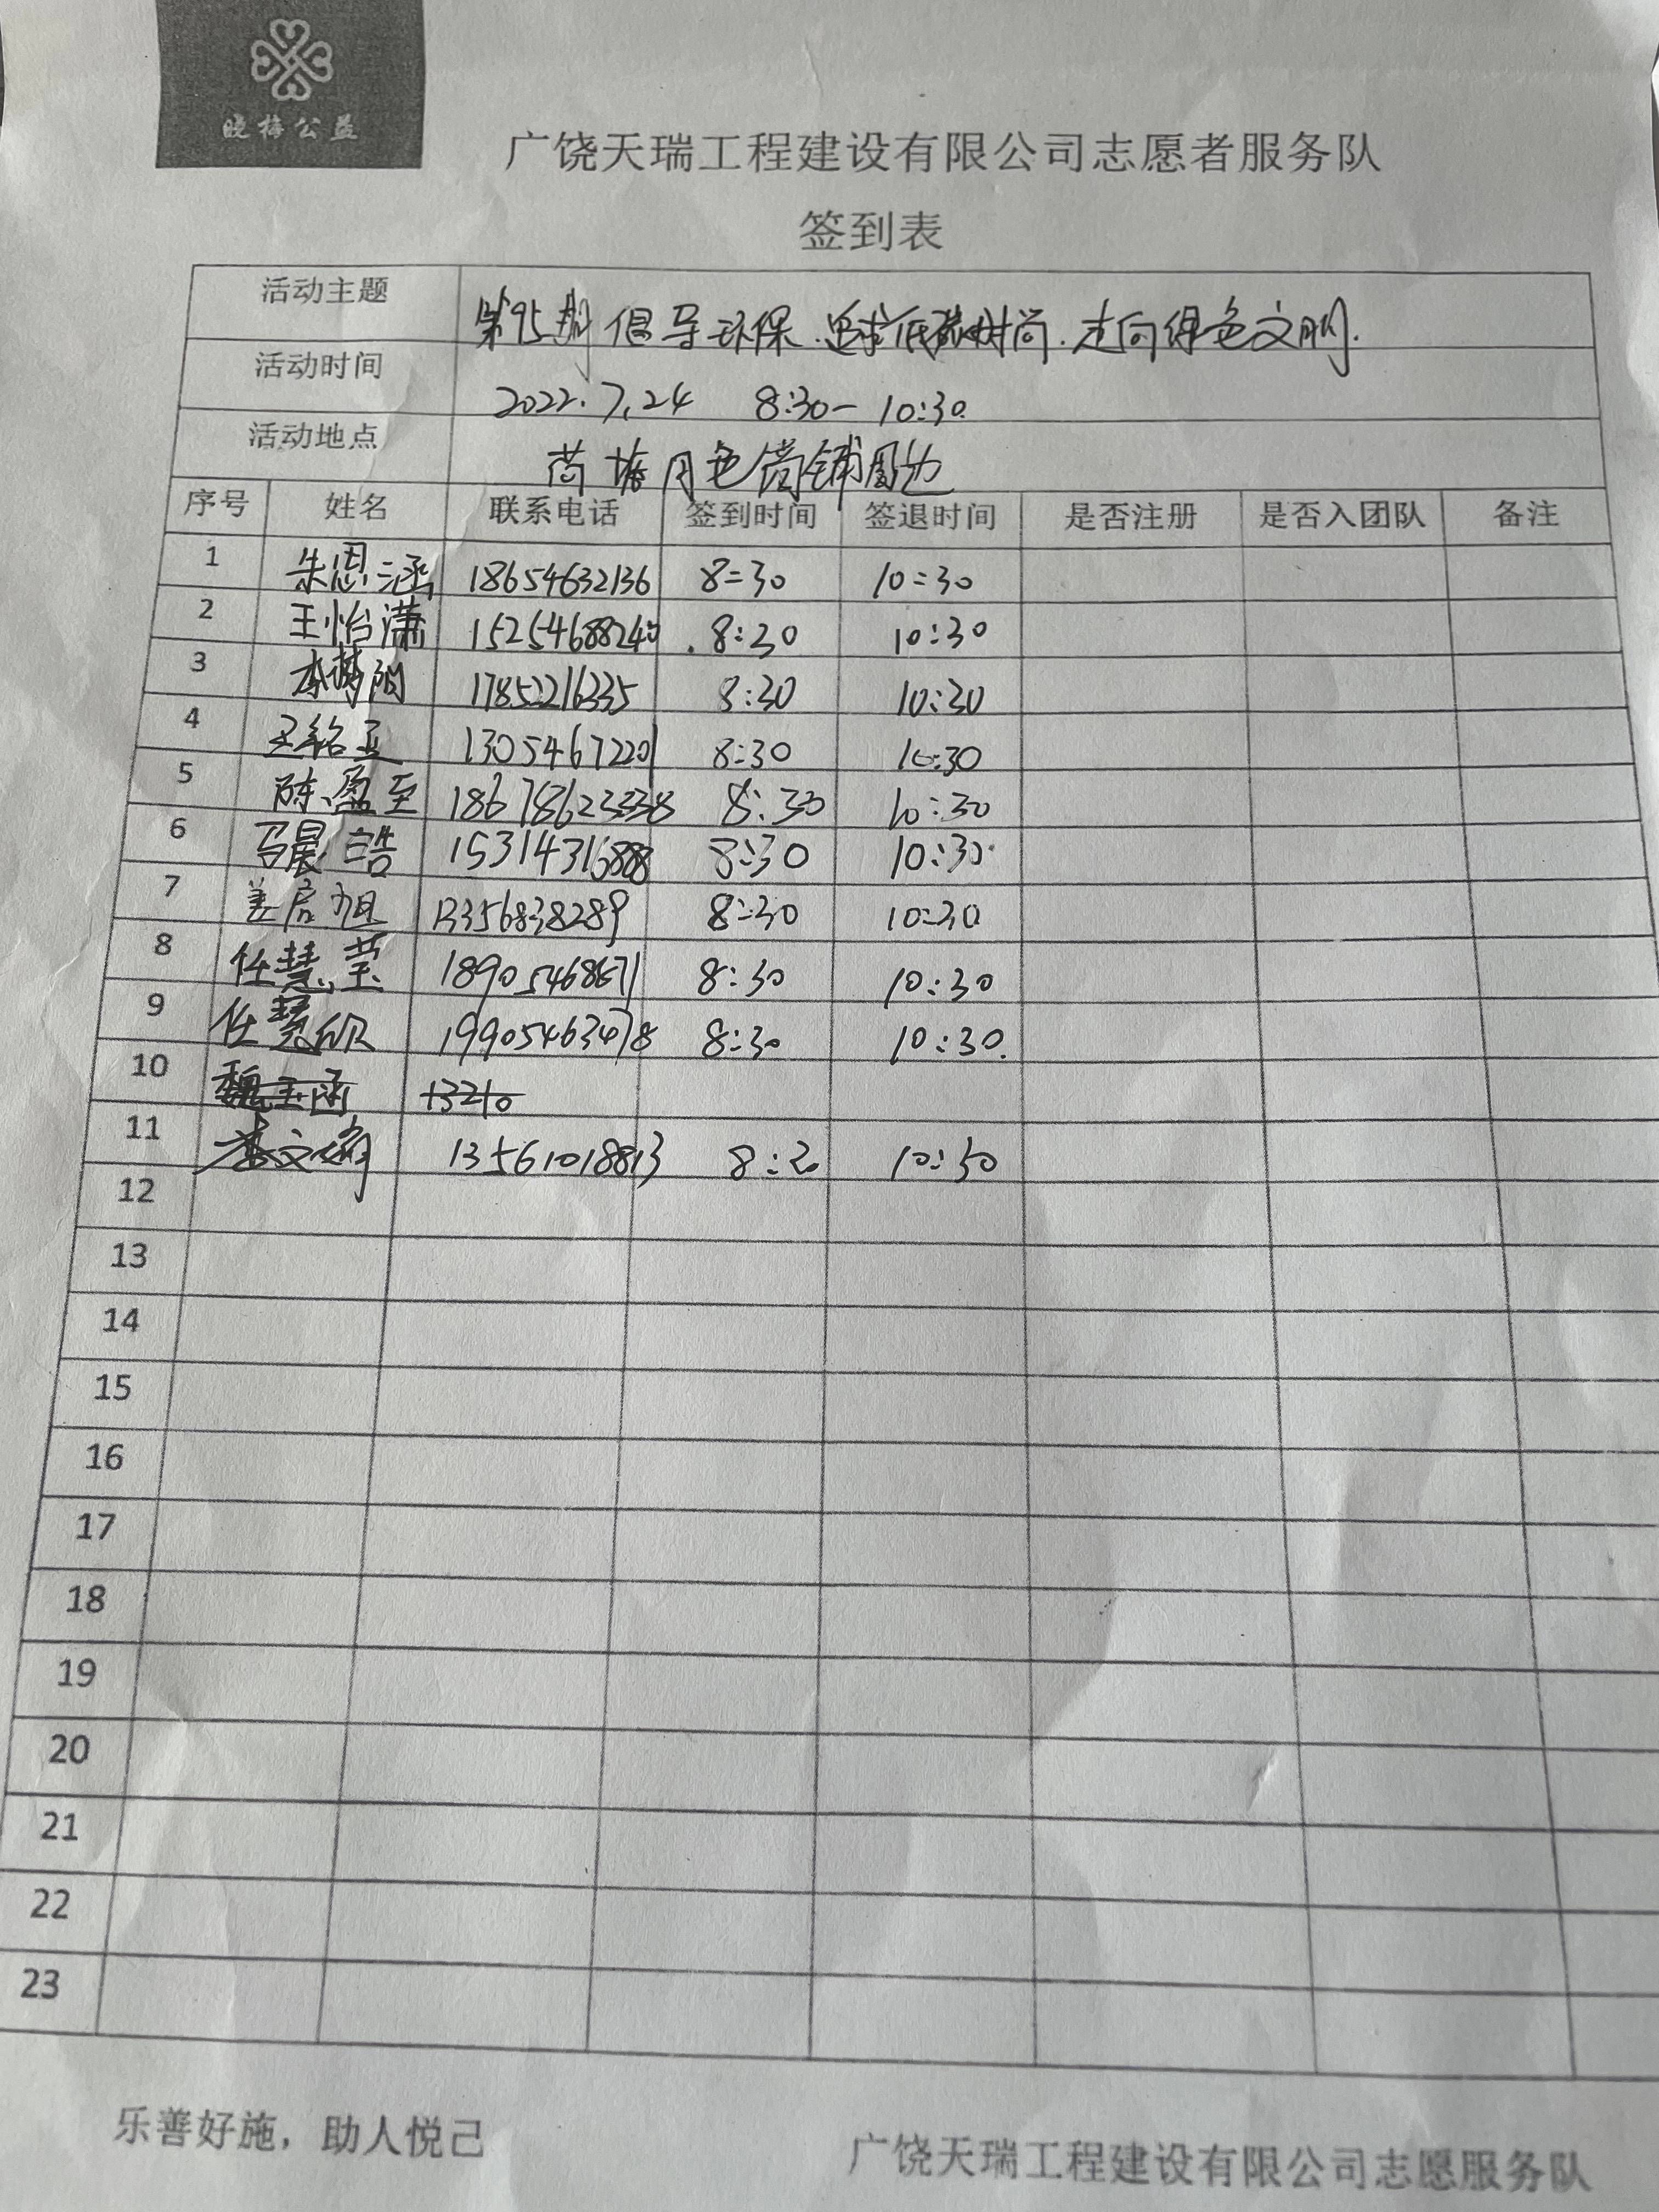 晓梅公益
广饶天瑞工程建设有限公司志愿者服务队
签到表
活动主题 第95期 倡导环保.追求低碳时尚.走向绿色文明.
活动时间 2022.7.24 8:30-10:30
活动地点 荷塘月色商铺周边
序号 姓名 联系电话 签到时间 签退时间 是否注册 是否入团队 备注
1 朱恩涵 18654632136 8:30 10:30
2 王怡潇 15254688240 8:30 10:30
3 李梦阳 17852216335 8:30 10:30
4 王铭亚 13054672201 8:30 10:30
5 陈盈至 18678623338 8:30 10:30
6 马晨皓 15314316888 8:30 10:30
7 姜启旭 13356838289 8:30 10:30
8 任慧莹 18905468671 8:30 10:30
9 任慧欣 19905463478 8:30 10:30
10 魏玉函 13210
11 李文 13561018813 8:30 10:30
12
13
14
15
16
17
18
19
20
21
22
23
乐善好施，助人悦己
广饶天瑞工程建设有限公司志愿服务队